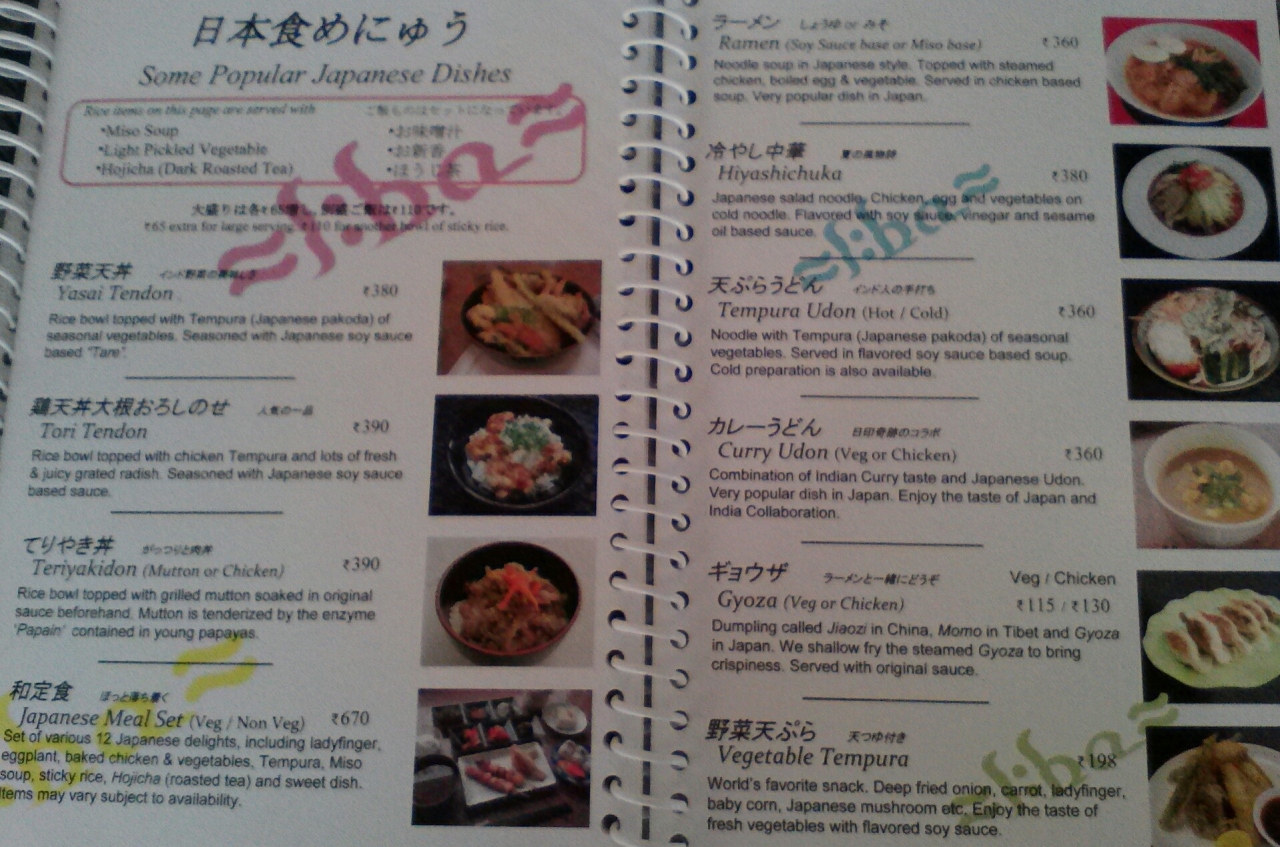 日本食めにゅう
Some Popular Japanese Dishes
Rice items on this page are served with
ご飯ものはセットになっております。
•Miso Soup
•お味噌汁
•Light Pickled Vegetable
•お新香
•Hojicha (Dark Roasted Tea)
•ほうじ茶
大盛りは各₹65増し、ご飯は₹110です。
₹65 extra for large serving, ₹110 for another bowl of sticky rice.
野菜天丼 インド野菜の美味しさ
Yasai Tendon ₹380
Rice bowl topped with Tempura (Japanese pakoda) of
seasonal vegetables. Seasoned with Japanese soy sauce
based "Tare".
鶏天丼大根おろしのせ 人気の一品
Tori Tendon ₹390
Rice bowl topped with chicken Tempura and lots of fresh
& juicy grated radish. Seasoned with Japanese soy sauce
based sauce.
てりやき丼 がっつりと肉丼
Teriyakidon (Mutton or Chicken) ₹390
Rice bowl topped with grilled mutton soaked in original
sauce beforehand. Mutton is tenderized by the enzyme
'Papain' contained in young papayas.
和定食 ほっと落ち着く
Japanese Meal Set (Veg / Non Veg) ₹670
Set of various 12 Japanese delights, including ladyfinger,
eggplant, baked chicken & vegetables, Tempura, Miso
soup, sticky rice, Hojicha (roasted tea) and sweet dish.
Items may vary subject to availability.
ラーメン しょうゆ or みそ
Ramen (Soy Sauce base or Miso base) ₹360
Noodle soup in Japanese style. Topped with steamed
chicken, boiled egg & vegetable. Served in chicken based
soup. Very popular dish in Japan.
冷やし中華 夏の風物詩
Hiyashichuka ₹380
Japanese salad noodle. Chicken, egg and vegetables on
cold noodle. Flavored with soy sauce, vinegar and sesame
oil based sauce.
天ぷらうどん インド人の手打ち
Tempura Udon (Hot / Cold) ₹360
Noodle with Tempura (Japanese pakoda) of seasonal
vegetables. Served in flavored soy sauce based soup.
Cold preparation is also available.
カレーうどん 日印奇跡のコラボ
Curry Udon (Veg or Chicken) ₹360
Combination of Indian Curry taste and Japanese Udon.
Very popular dish in Japan. Enjoy the taste of Japan and
India Collaboration.
ギョウザ ラーメンと一緒にどうぞ Veg / Chicken
Gyoza (Veg or Chicken) ₹115 / ₹130
Dumpling called Jiaozi in China, Momo in Tibet and Gyoza
in Japan. We shallow fry the steamed Gyoza to bring
crispiness. Served with original sauce.
野菜天ぷら 天つゆ付き
Vegetable Tempura ₹198
World's favorite snack. Deep fried onion, carrot, ladyfinger,
baby corn, Japanese mushroom etc. Enjoy the taste of
fresh vegetables with flavored soy sauce.